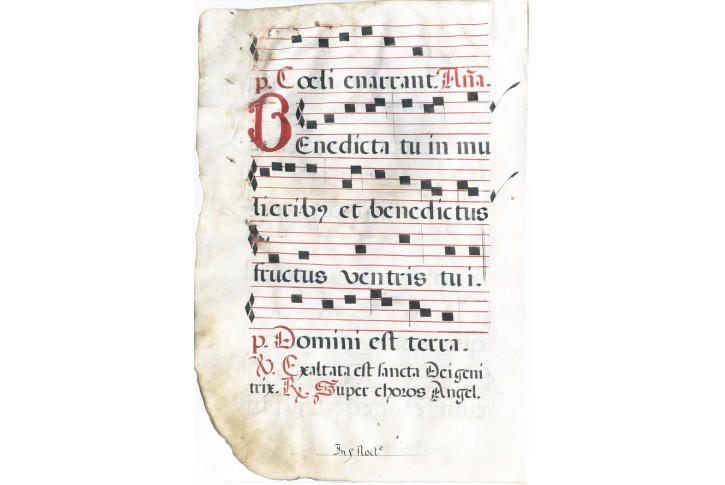 p. Cœli enarrant. Aña.
Benedicta tu in mu
lierib9 et benedictus
fructus ventris tui.
p. Domini est terra.
V. Exaltata est sancta Dei geni
trix. R. Super choros Angel.